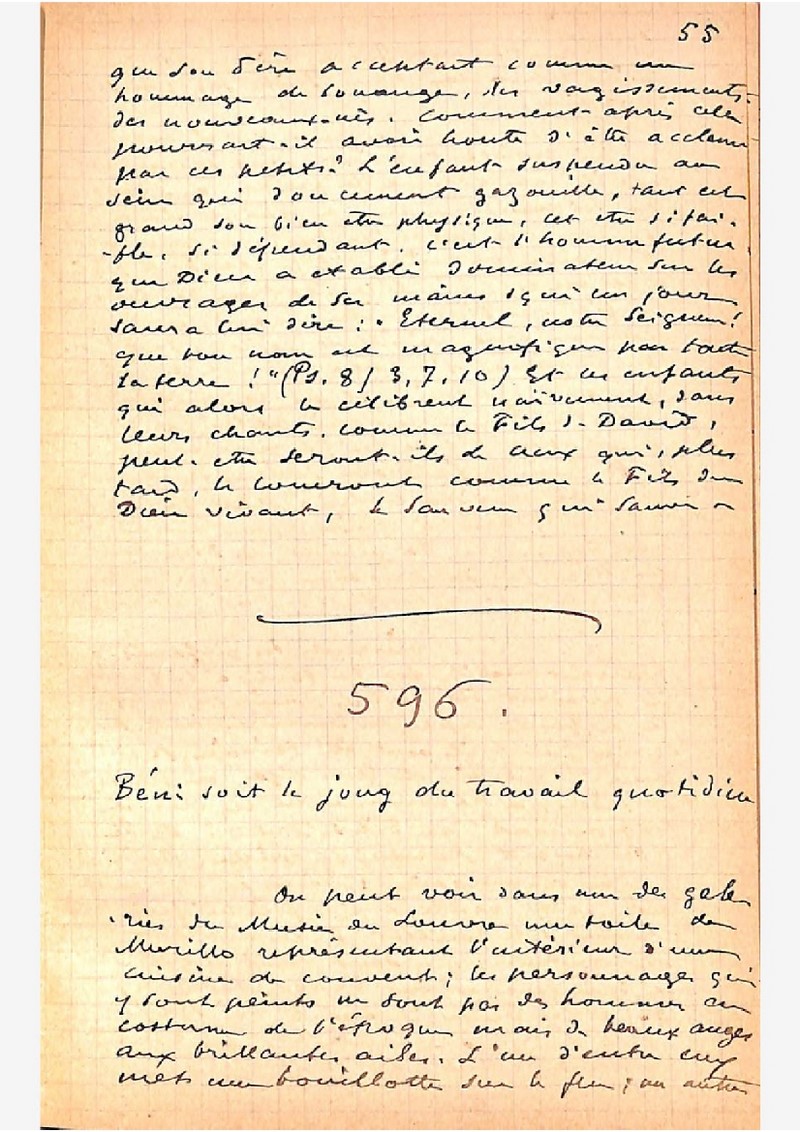 55
que son Père acceptait comme un
hommage de louange, les vagissements
des nouveaux-nés. Comment après cela
pourrait-il avoir honte d'être acclamé
par ces petits? L'enfant suspendu au
sein qui doucement gazouille, tant est
grand son bien être physique, cet être si fai-
-ble, si dépendant, c'est l'homme futur
que Dieu a établi dominateur sur les
ouvrages de ses mains & qui un jour
saura lui dire: "Eternel, notre Seigneur!
que ton nom est magnifique par toute
la terre!" (Ps. 8/ 3, 7, 10) Et ces enfants
qui alors le célèbrent naïvement, dans
leurs chants, comme le Fils de David,
peut-être seront-ils de ceux qui, plus
tard, le loueront comme le Fils du
Dieu vivant, le Sauveur qui sauve
596.
Béni soit le joug du travail quotidien
On peut voir dans une des gale-
-ries du Musée du Louvre une toile de
Murillo représentant l'intérieur d'une
cuisine de couvent; les personnages qui
y sont peints ne sont pas des hommes en
costume de l'époque mais de beaux anges
aux brillantes ailes. L'un d'entre eux
met une bouillotte sur le feu; un autre